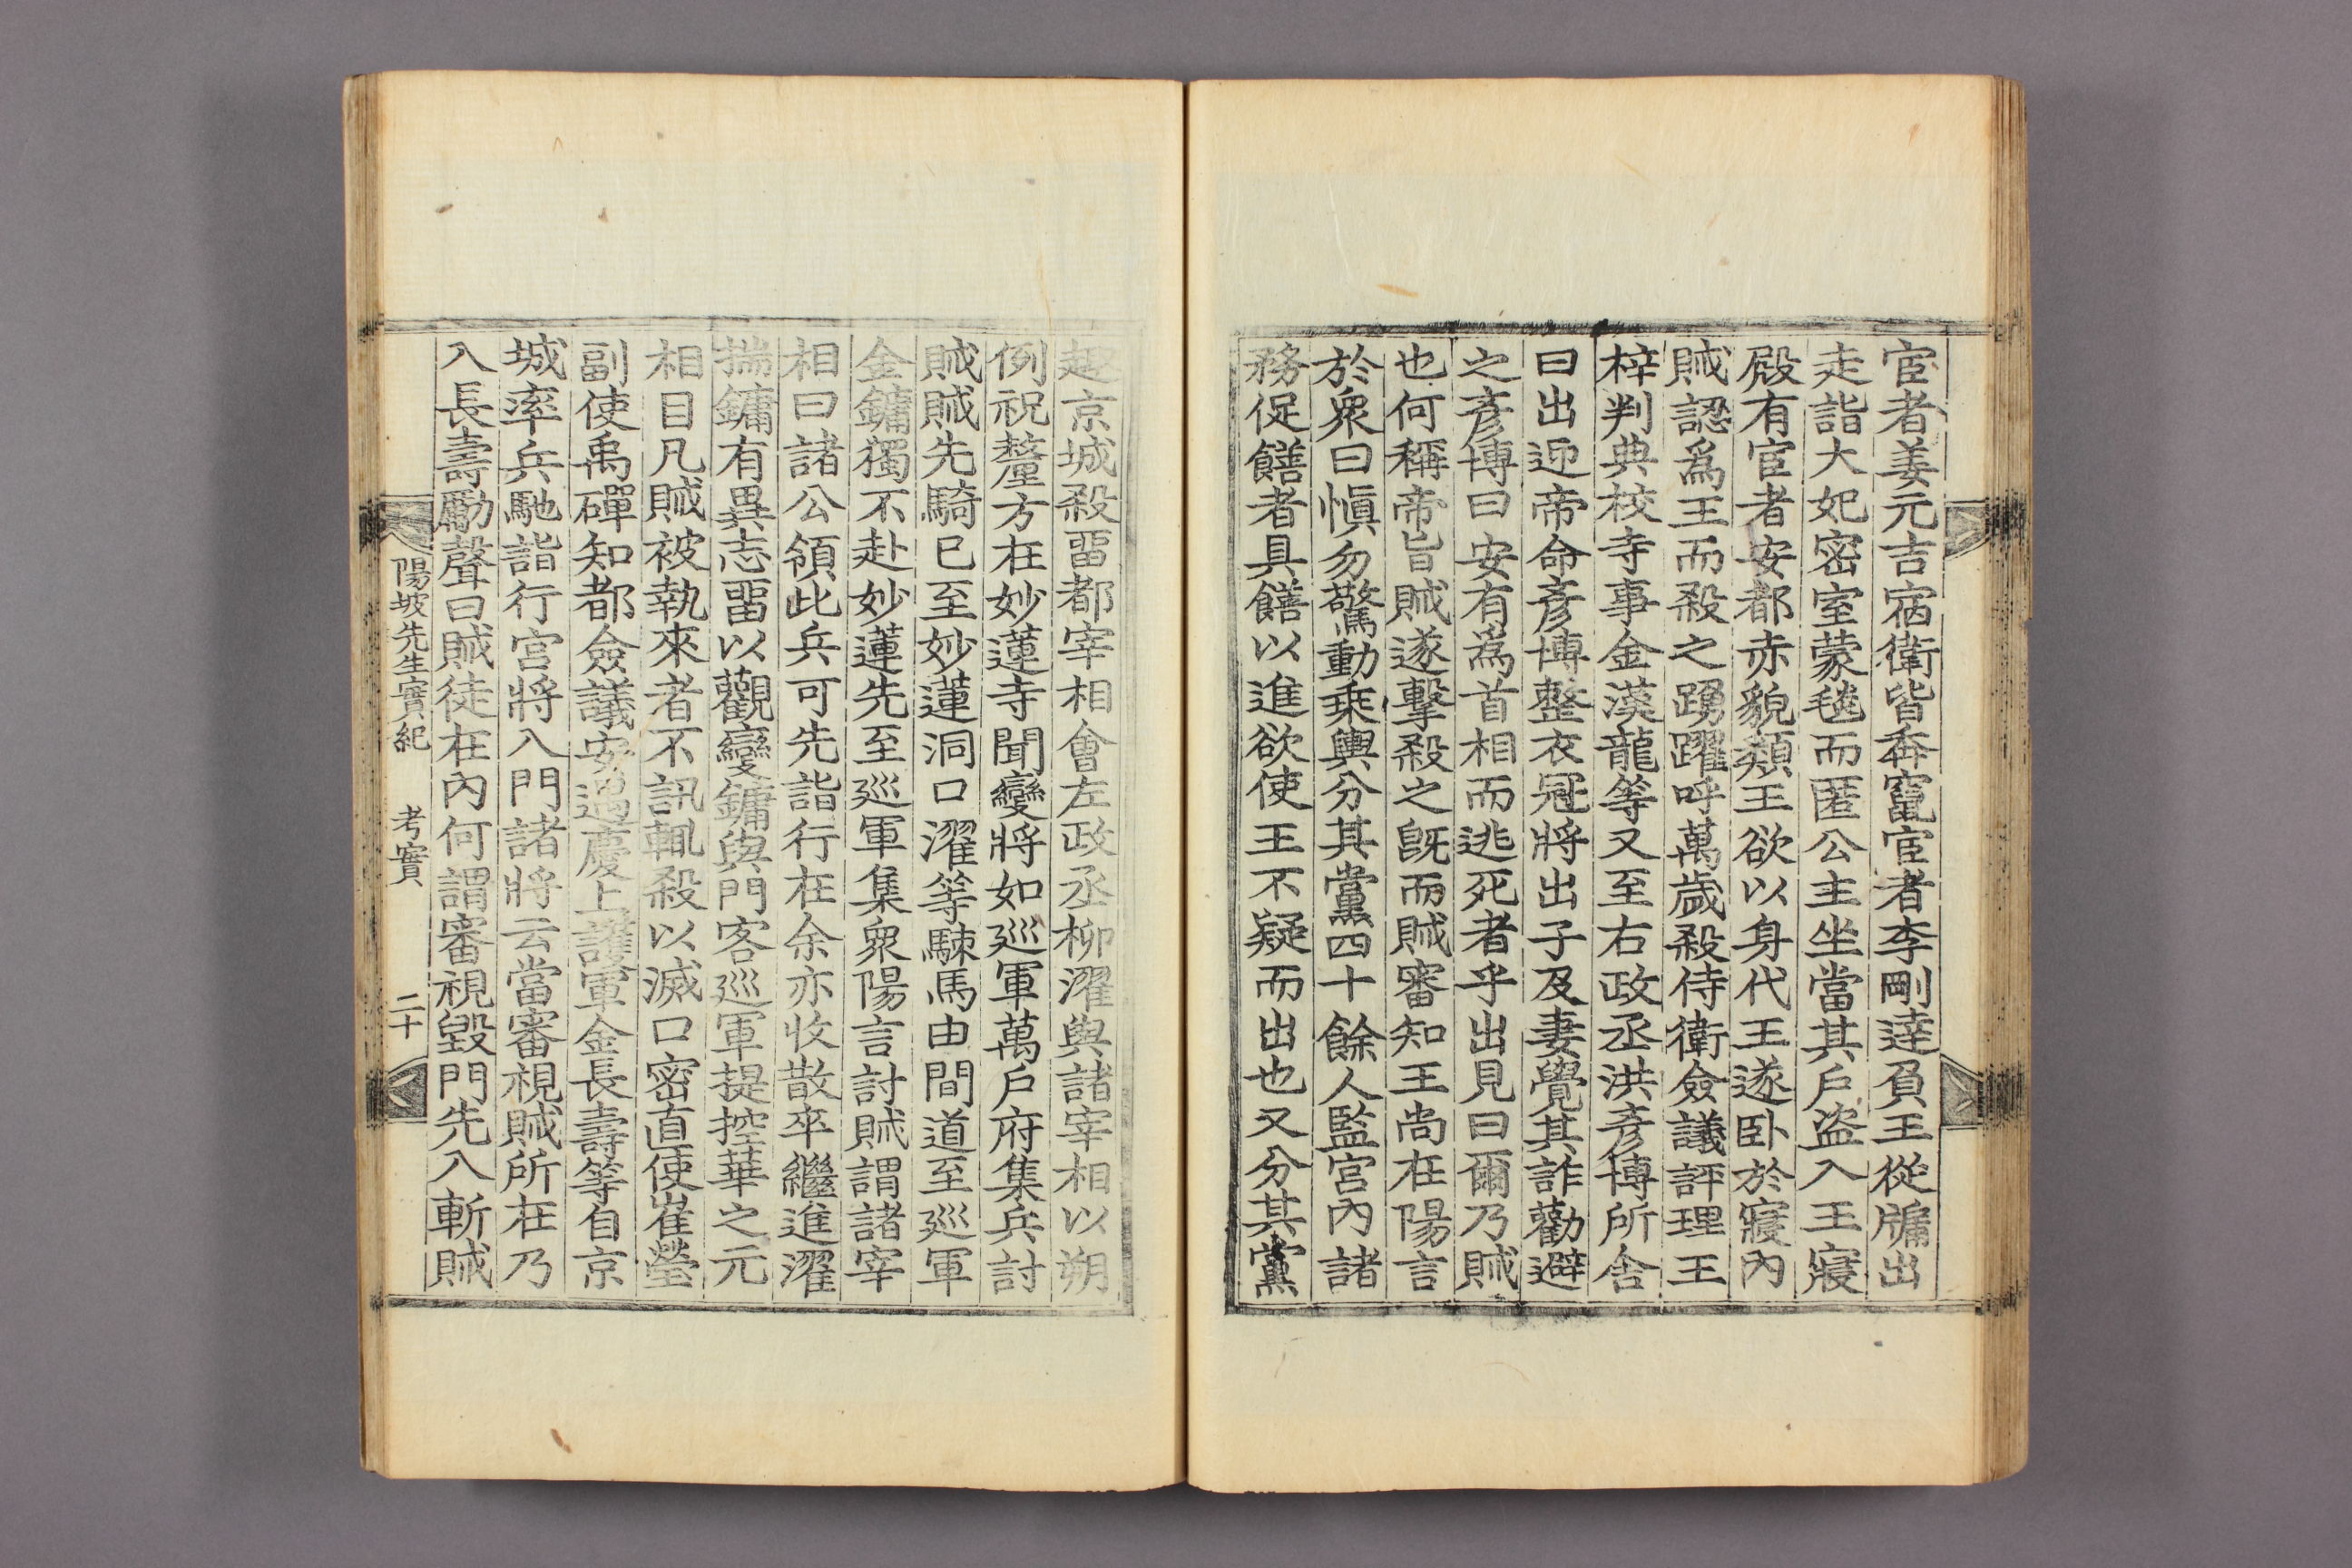 宦者姜元吉宿衛皆奔竄宦者李剛達負王從牖出
走詣大妃密室蒙毯而匿公主坐當其戶盜入王寢
殿有宦者安都赤貌類王欲以身代王遂卧於寢內
賊認爲王而殺之踴躍呼萬歲殺侍衛僉議評理王
梓判典校寺事金漢龍等又至右政丞洪彥博所舍
曰出迎帝命彥博整衣冠將出子及妻覺其詐勸避
之彥博曰安有爲首相而逃死者乎出見曰爾乃賊
也何稱帝旨賊遂擊殺之旣而賊審知王尚在陽言
於衆曰愼勿驚動乗輿分其黨四十餘人監宮內諸
務促饍者具饍以進欲使王不疑而出也又分其黨
趣京城殺畱都宰相會左政丞柳濯與諸宰相以朔
例祝釐方在妙蓮寺聞變將如廵軍萬戶府集兵討
賊賊先騎已至妙蓮洞口濯等駷馬由間道至廵軍
金鏞獨不赴妙蓮先至廵軍集衆陽言討賊謂諸宰
相曰諸公領此兵可先詣行在余亦收散卒繼進濯
揣鏞有異志畱以觀變鏞與門客廵軍提控華之元
相目凡賊被執來者不訊輒殺以滅口密直使崔瑩
副使禹磾知都僉議安遇慶上護軍金長壽等自京
城率兵馳詣行宮將入門諸將云當審視賊所在乃
入長壽勵聲曰賊徒在內何謂審視毀門先入斬賊
陽坡先生實紀 考實 二十